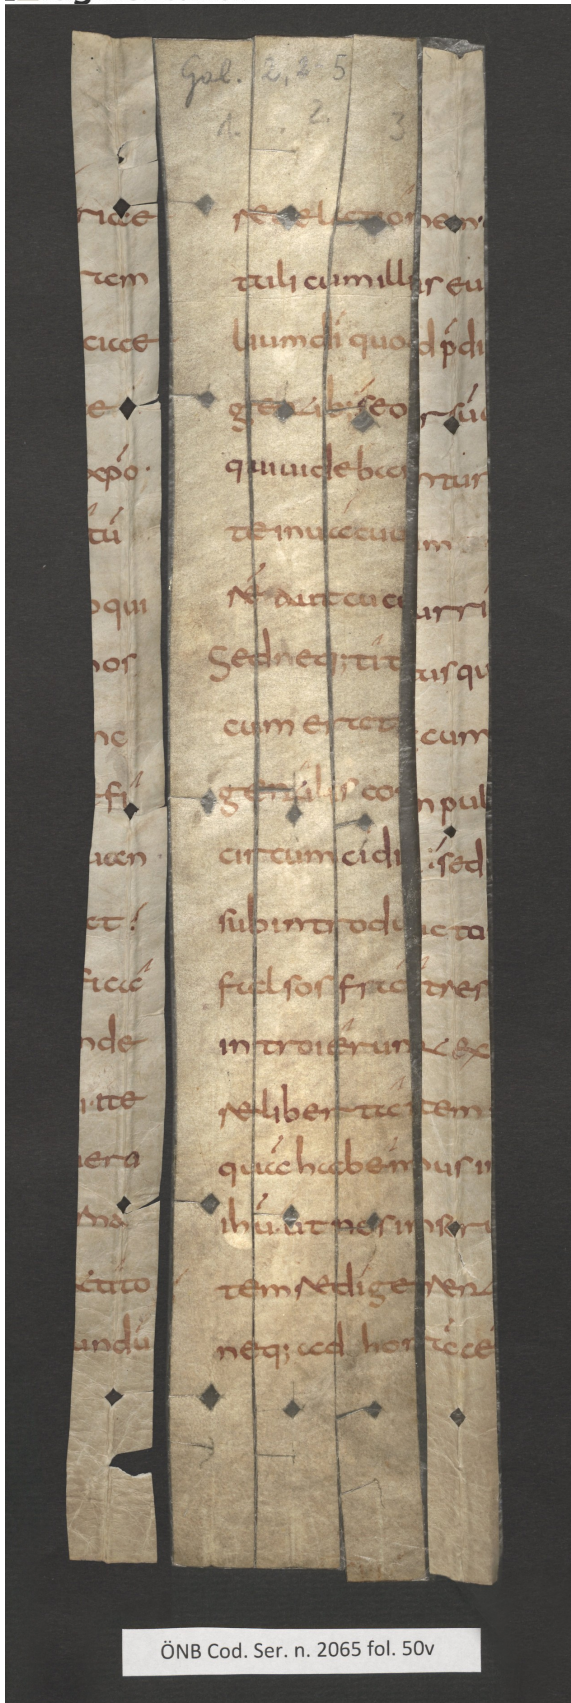 Gal. 2, 2 5
1. 2. 3
ricce
tem
cicce
e
xp̄o·
tū
o qui
nos
ne
fi
acen
et :
ficac
nde
ate
era
ma
ctito
undū
reuelationem
tuli cum illis eu
lium dī quod p̄di
gentib; seorsū
qui uidebantur
te in uacuum
rē aut cucurri
Sed neq; titus qu
cum erat cum
gentilis conpul
circumcidi : sed
subintroducto
falsos fratres
introierunt ex
re libertatem
quā habemus in
ihū. ut nos in seru
tem redigeren
neq; ad horā ce
ÖNB Cod. Ser. n. 2065 fol. 50v